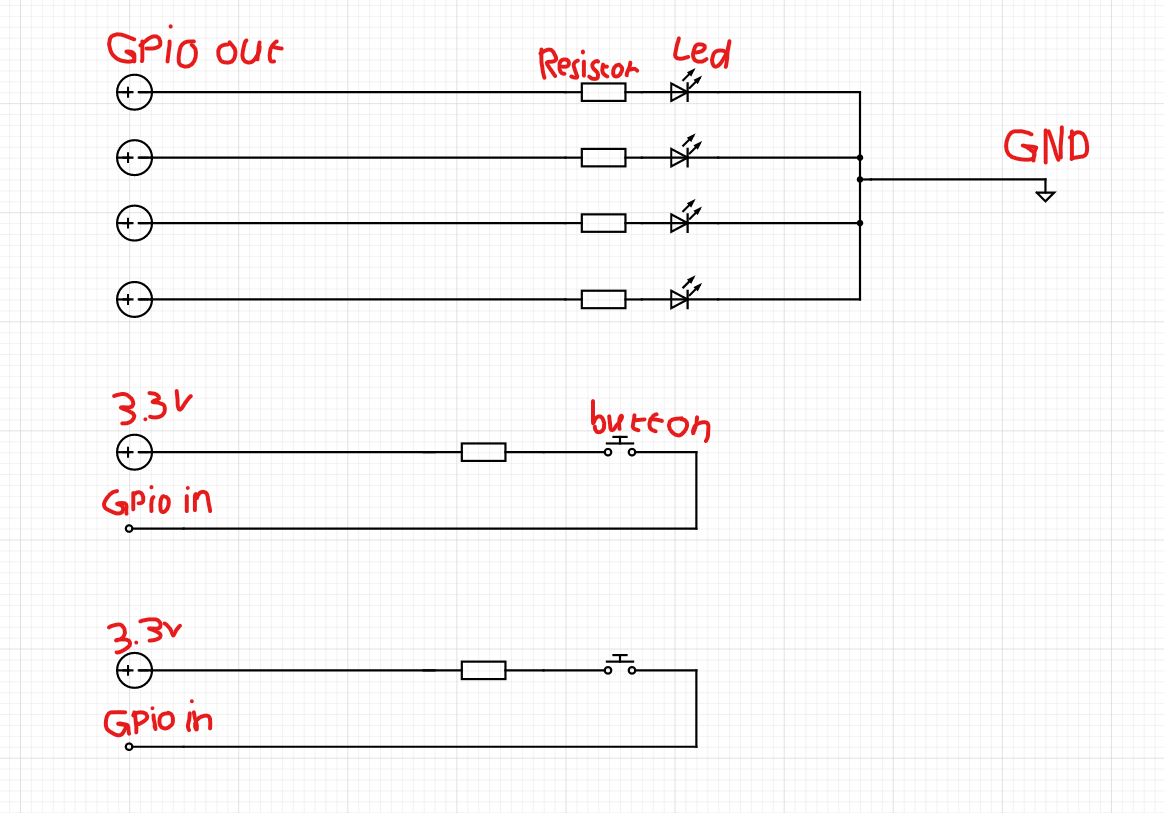 GPiO out
Resistor
Led
GND
3.3V
button
GPiO in
3.3v
GPiO in